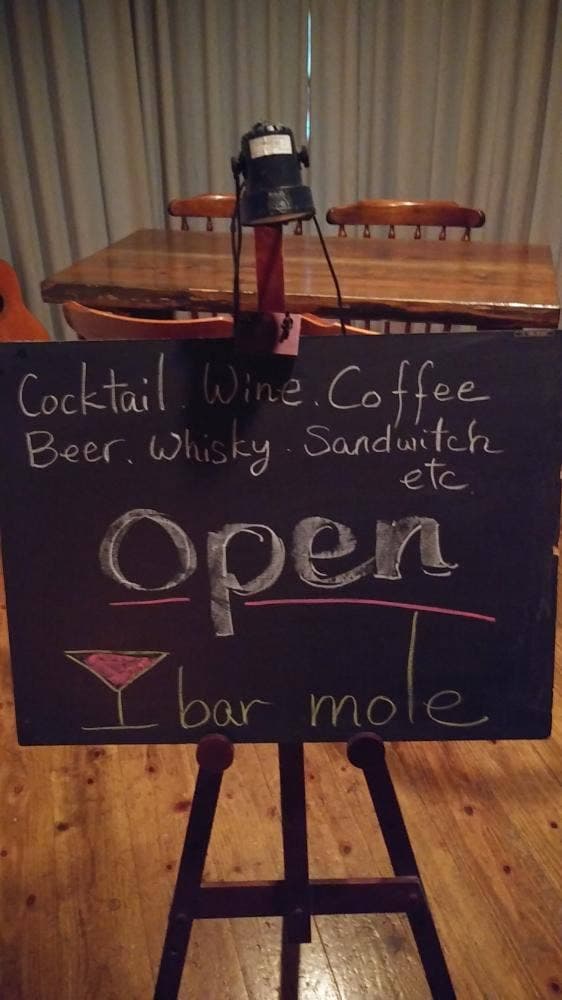 Cocktail. Wine. Coffee
Beer. Whisky. Sandwitch
etc.
Open
bar mole